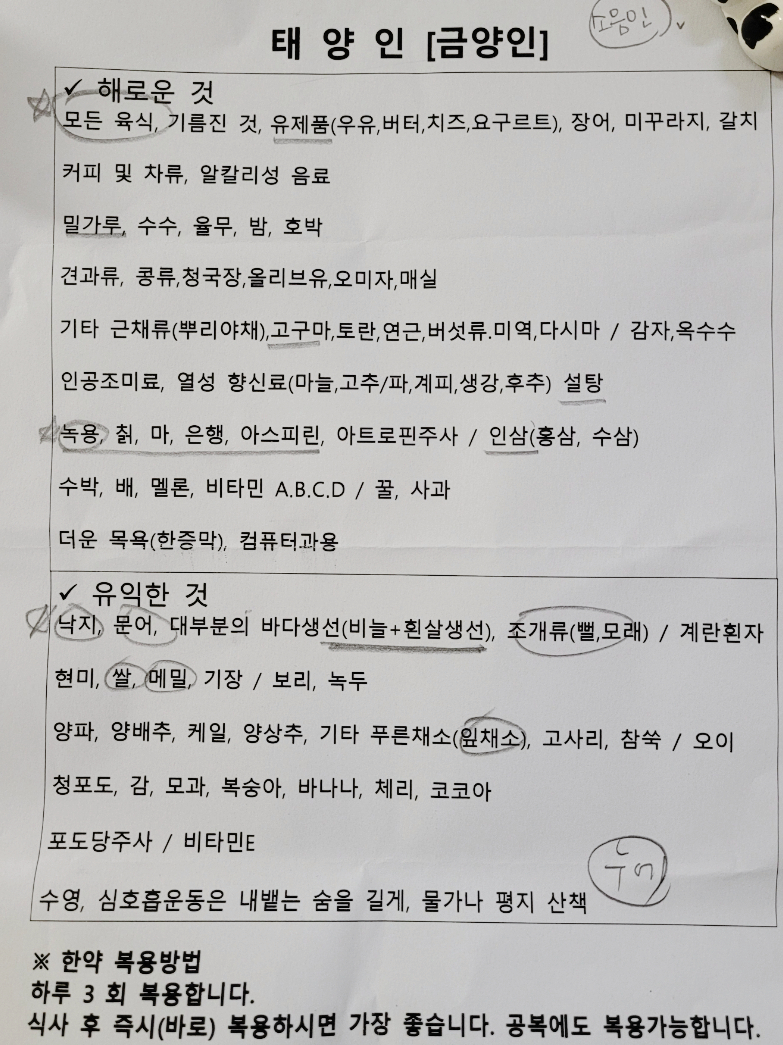 태 양 인 [금양인]
소음인
✓ 해로운 것
모든 육식, 기름진 것, 유제품(우유,버터,치즈,요구르트), 장어, 미꾸라지, 갈치
커피 및 차류, 알칼리성 음료
밀가루, 수수, 율무, 밤, 호박
견과류, 콩류,청국장,올리브유,오미자,매실
기타 근채류(뿌리야채),고구마,토란,연근,버섯류.미역,다시마 / 감자,옥수수
인공조미료, 열성 향신료(마늘,고추/파,계피,생강,후추) 설탕
녹용, 칡, 마, 은행, 아스피린, 아트로핀주사 / 인삼(홍삼, 수삼)
수박, 배, 멜론, 비타민 A.B.C.D / 꿀, 사과
더운 목욕(한증막), 컴퓨터과용
✓ 유익한 것
낙지, 문어, 대부분의 바다생선(비늘+흰살생선), 조개류(뻘,모래) / 계란흰자
현미, 쌀, 메밀, 기장 / 보리, 녹두
양파, 양배추, 케일, 양상추, 기타 푸른채소(잎채소), 고사리, 참쑥 / 오이
청포도, 감, 모과, 복숭아, 바나나, 체리, 코코아
포도당주사 / 비타민E
수영, 심호흡운동은 내뱉는 숨을 길게, 물가나 평지 산책
※ 한약 복용방법
하루 3 회 복용합니다.
식사 후 즉시(바로) 복용하시면 가장 좋습니다. 공복에도 복용가능합니다.